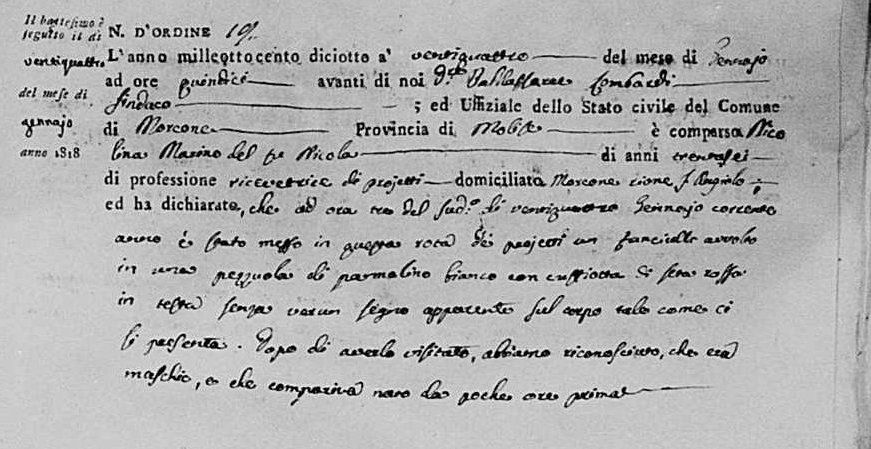 Il battesimo è
seguito il dì
ventiquattro
del mese di
gennajo
anno 1818
N. D'ORDINE 19.
L'anno milleottocento diciotto a' ventiquattro del mese di Gennajo
ad ore quindici avanti di noi Baldassarre Lombardi
Sindaco ; ed Uffiziale dello Stato civile del Comune
di Morcone Provincia di Molise è comparsa Nico
lina Marino del Nicola di anni trentasei
di professione ricevetrice di projetti domiciliata Morcone rione S. Angiolo ;
ed ha dichiarato, che ad ora tre del sud.o dì ventiquattro Gennajo corrente
anno è stato messo in questa rota dei projetti un fanciullo avvolto
in una pezzuola di pannolino bianco con cuffiotta di seta rossa
in testa senza verun segno apparente sul corpo tale come ci
si presenta. Dopo di averlo visitato, abbiamo riconosciuto, che era
maschio, e che compariva nato da poche ore prima